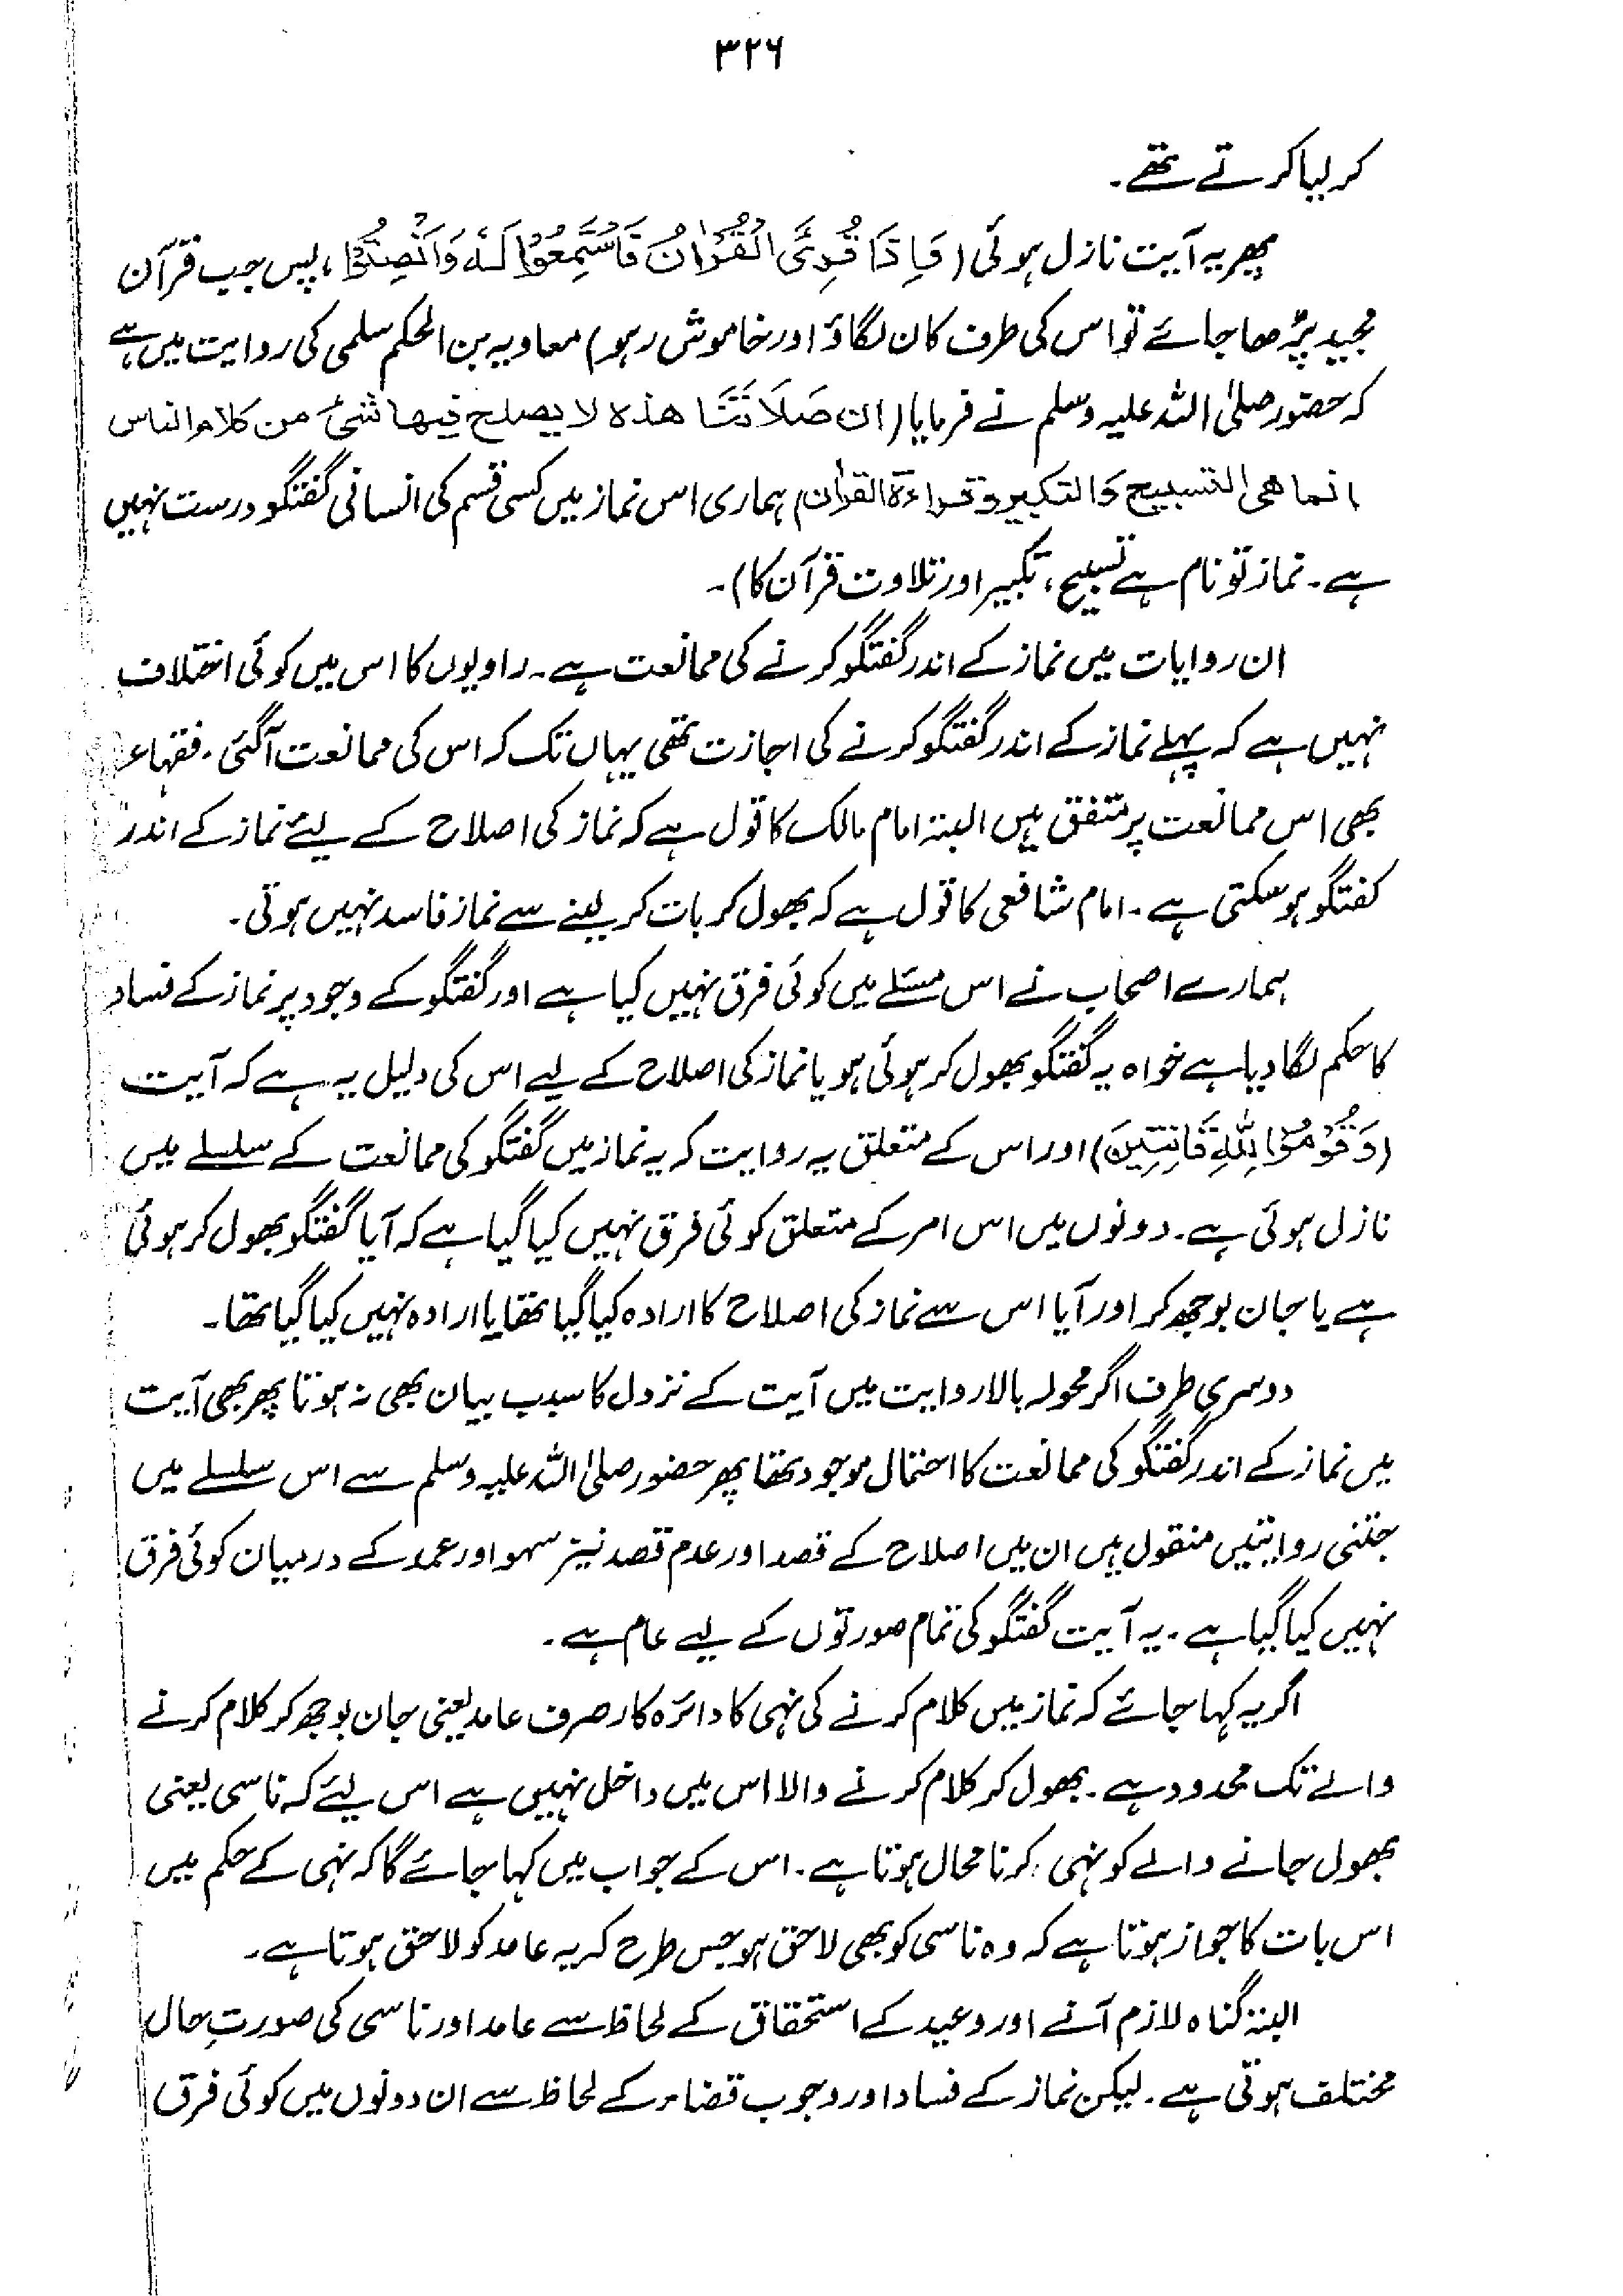 ۳۲۶
کر لیا کرتے تھے۔
پھر یہ آیت نازل ہوئی (فَاِذَا قُرِئَ الْقُرْاٰنُ فَاسْتَمِعُوْا لَهٗ وَاَنْصِتُوْا، پس جب قرآن
مجید پڑھا جائے تو اس کی طرف کان لگاؤ اور خاموش رہو) معاویہ بن الحکم سلمی کی روایت میں ہے
کہ حضور صلی اللہ علیہ وسلم نے فرمایا (ان صَلَاتَنَا هذه لا يصلح فيها شئ من كلام الناس
انما هي التسبيح وَالتكبير وقراءة القرآن) ہماری اس نماز میں کسی قسم کی انسانی گفتگو درست نہیں
ہے۔ نماز تو نام ہے تسبیح، تکبیر اور تلاوت قرآن کا)۔
ان روایات میں نماز کے اندر گفتگو کرنے کی ممانعت ہے۔ راویوں کا اس میں کوئی اختلاف
نہیں ہے کہ پہلے نماز کے اندر گفتگو کرنے کی اجازت تھی یہاں تک کہ اس کی ممانعت آگئی۔ فقہاء
بھی اس ممانعت پر متفق ہیں البتہ امام مالک کا قول ہے کہ نماز کی اصلاح کے لیئے نماز کے اندر
گفتگو ہو سکتی ہے۔ امام شافعی کا قول ہے کہ بھول کر بات کر لینے سے نماز فاسد نہیں ہوتی۔
ہمارے اصحاب نے اس مسئلے میں کوئی فرق نہیں کیا ہے اور گفتگو کے وجود پر نماز کے فساد
کا حکم لگا دیا ہے خواہ یہ گفتگو بھول کر ہوئی ہو یا نماز کی اصلاح کے لیے اس کی دلیل یہ ہے کہ آیت
(وَقُوْمُوْا لِلّٰهِ قَانِتِيْنَ) اور اس کے متعلق یہ روایت کہ یہ نماز میں گفتگو کی ممانعت کے سلسلے میں
نازل ہوئی ہے۔ دونوں میں اس امر کے متعلق کوئی فرق نہیں کیا گیا ہے کہ آیا گفتگو بھول کر ہوئی
ہے یا جان بوجھ کر اور آیا اس سے نماز کی اصلاح کا ارادہ کیا گیا تھا یا ارادہ نہیں کیا گیا تھا۔
دوسری طرف اگر محولہ بالا روایت میں آیت کے نزول کا سبب بیان بھی نہ ہوتا پھر بھی آیت
میں نماز کے اندر گفتگو کی ممانعت کا احتمال موجود تھا پھر حضور صلی اللہ علیہ وسلم سے اس سلسلے میں
جتنی روایتیں منقول ہیں ان میں اصلاح کے قصد اور عدم قصد نیز سہو اور عمد کے درمیان کوئی فرق
نہیں کیا گیا ہے۔ یہ آیت گفتگو کی تمام صورتوں کے لیے عام ہے۔
اگر یہ کہا جائے کہ نماز میں کلام کرنے کی نہی کا دائرہ کار صرف عامد یعنی جان بوجھ کر کلام کرنے
والے تک محدود ہے۔ بھول کر کلام کرنے والا اس میں داخل نہیں ہے اس لیئے کہ ناسی یعنی
بھول جانے والے کو نہی کرنا محال ہوتا ہے۔ اس کے جواب میں کہا جائے گا کہ نہی کے حکم میں
اس بات کا جواز ہوتا ہے کہ وہ ناسی کو بھی لاحق ہو جس طرح کہ یہ عامد کو لاحق ہوتا ہے۔
البتہ گناہ لازم آنے اور وعید کے استحقاق کے لحاظ سے عامد اور ناسی کی صورتِ حال
مختلف ہوتی ہے۔ لیکن نماز کے فساد اور وجوب قضاء کے لحاظ سے ان دونوں میں کوئی فرق